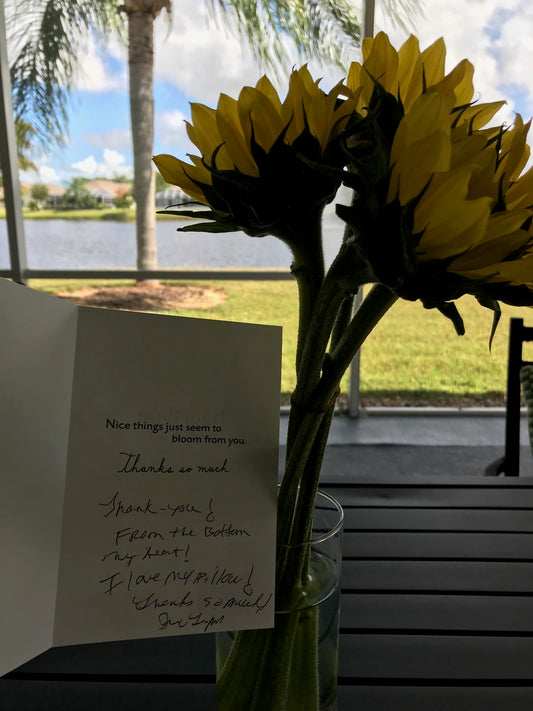 Nice things just seem to
bloom from you.
Thanks so much.
Thank-you!
From the Bottom
my heart!
I love my pillow!
Thanks so much!